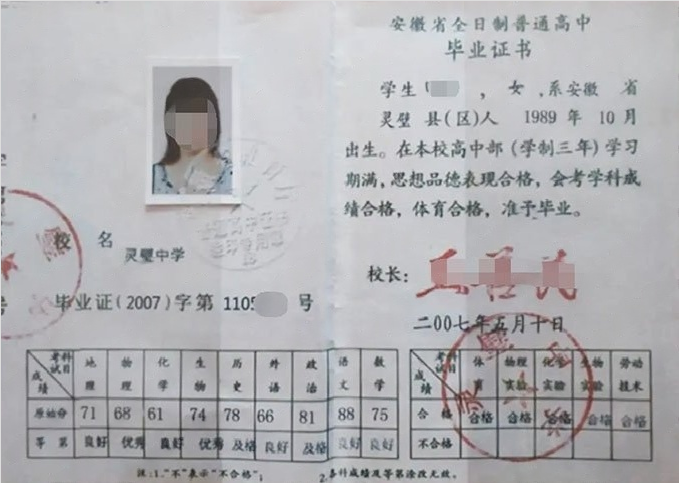 安徽省全日制普通高中
毕业证书
学生 ，女，系安徽 省
灵璧 县(区)人 1989 年 10 月
出生。在本校高中部(学制三年)学习
期满，思想品德表现合格，会考学科成
绩合格，体育合格，准予毕业。
校长：
二〇〇七年五月十日
校 名
灵璧中学
毕业证(2007)字第 1105 号
考试科目 成绩 地理 物理 化学 生物 历史 外语 政治 语文 数学
原始分 71 68 61 74 78 66 81 88 75
等 第 良好 优秀 良好 优秀 及格 良好 及格 良好 良好
考试科目 成绩 体育 物理实验 化学实验 生物实验 劳动技术
合 格 合格 合格 合格 合格 合格
不合格
注:1."不"表示"不合格"; 2.各科成绩及等第涂改无效。